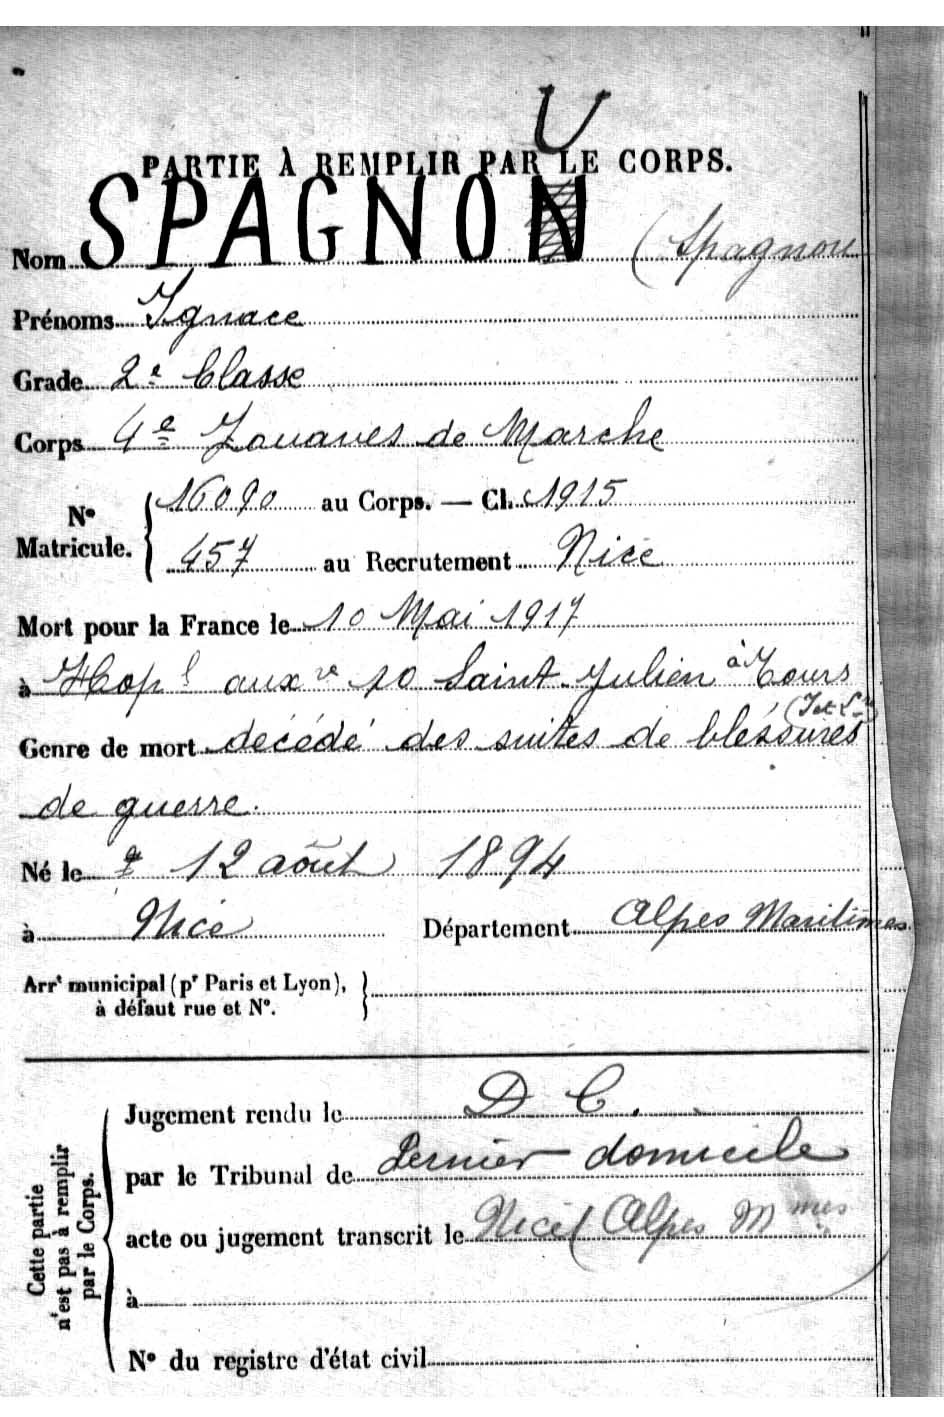 PARTIE À REMPLIR PAR LE CORPS.
U
Nom SPAGNON (Spagnou
Prénoms Ignace
Grade 2e Classe
Corps 4e Zouaves de Marche
No Matricule. 16090 au Corps. — Cl. 1915
457 au Recrutement Nice
Mort pour la France le 10 Mai 1917
à Hopl auxre 10 Saint-Julien à Tours
(I et L-re)
Genre de mort décédé des suites de bléssures
de guerre.
Né le 12 août 1894
à Nice Département Alpes Maritimes.
Arrt municipal (pr Paris et Lyon),
à défaut rue et No.
Jugement rendu le D C.
par le Tribunal de Dernier domicile
acte ou jugement transcrit le Nice (Alpes Mmes
à
No du registre d'état civil
Cette partie
n'est pas à remplir
par le Corps.